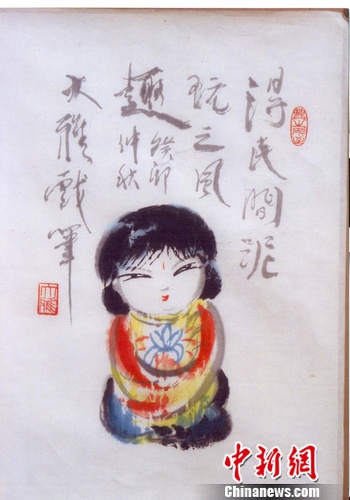 得民間泥
玩之風
趣
癸卯
仲秋
大雅戲筆
中新網
Chinanews.com